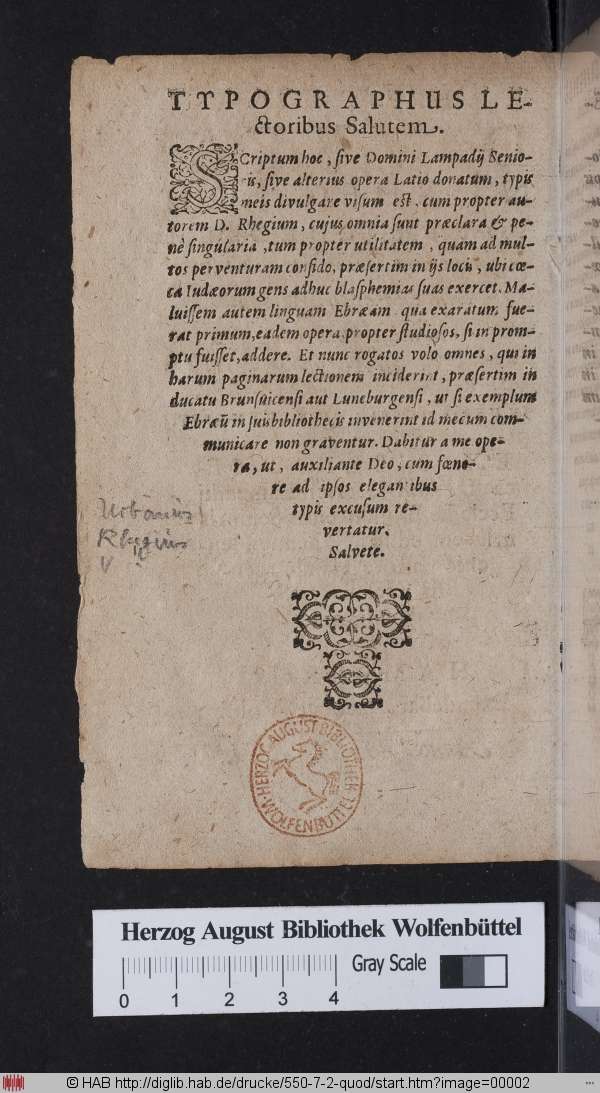 TYPOGRAPHUS LE-
ctoribus Salutem.
SCriptum hoc, sive Domini Lampadij Senio-
ris, sive alterius opera Latio donatum, typis
meis divulgare visum est, cum propter au-
torem D. Rhegium, cujus omnia sunt præclara & pe-
nè singularia, tum propter utilitatem, quam ad mul-
tos perventuram confido, præsertim in ijs locis, ubi cœ-
ca Iudæorum gens adhuc blasphemias suas exercet. Ma-
luissem autem linguam Ebræam qua exaratum fue-
rat primum, eadem opera propter studiosos, si in prom-
ptu fuisset, addere. Et nunc rogatos volo omnes, qui in
harum paginarum lectionem inciderint, præsertim in
ducatu Brunsuicensi aut Luneburgensi, ut si exemplum
Ebræū in suis bibliothecis invenerint id mecum com-
municare non graventur. Dabitur a me ope-
ra, ut, auxiliante Deo, cum fœno-
re ad ipsos elegantibus
typis excusum re-
vertatur.
Salvete.
Urbanius
Rhegius
HERZOG AUGUST BIBLIOTHEK
WOLFENBÜTTEL
Herzog August Bibliothek Wolfenbüttel
Gray Scale
0 1 2 3 4
© HAB http://diglib.hab.de/drucke/550-7-2-quod/start.htm?image=00002